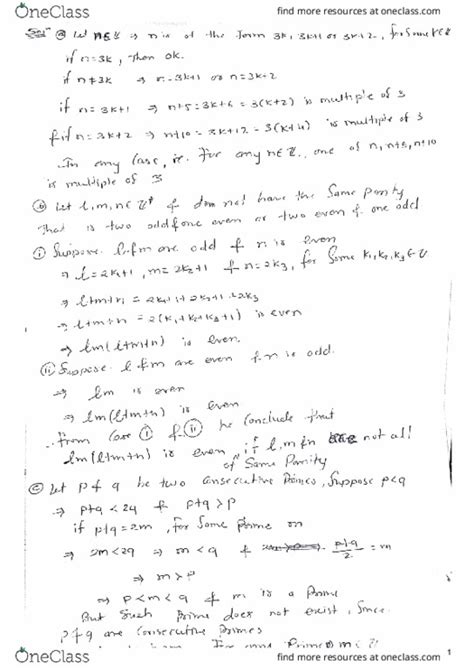 OneClass
find more resources at oneclass.com
find more resources at oneclass.com
Solⁿ ⓐ Let n∈ℤ ⇒ n is of the form 3k, 3k+1 or 3k+2, for some k∈
if n=3k, then ok.
if n≠3k ⇒ n=3k+1 or n=3k+2
if n=3k+1 ⇒ n+5=3k+6=3(k+2) is multiple of 3
& if n=3k+2 ⇒ n+10=3k+12=3(k+4) is multiple of 3
In any case, i.e. for any n∈ℤ, one of n, n+5, n+10
is multiple of 3
ⓑ Let l,m,n∈ℤ⁺ & do not have the same parity
That is two odd & one even or two even & one odd
ⓘ Suppose l & m are odd & n is even
⇒ l=2k₁+1, m=2k₂+1 & n=2k₃, for some k₁,k₂,k₃∈
⇒ l+m+n = 2k₁+1+2k₂+1+2k₃
⇒ l+m+n = 2(k₁+k₂+k₃+1) is even
⇒ lm(l+m+n) is even.
ⓘⓘ Suppose l & m are even & n is odd.
⇒ lm is even
⇒ lm(l+m+n) is even
∴ From case ⓘ & ⓘⓘ we conclude that
lm(l+m+n) is even if l,m & n not all
of same parity
ⓒ Let p & q be two consecutive primes, suppose p<q
⇒ p+q<2q & p+q>p
if p+q=2m, for some prime m
⇒ 2m<2q ⇒ m<q & p+q/2 = m
⇒ m>p
⇒ p<m<q & m is a prime
But such prime does not exist, since
p & q are consecutive primes
OneClass
find more resources at oneclass.com
find more resources at oneclass.com
1